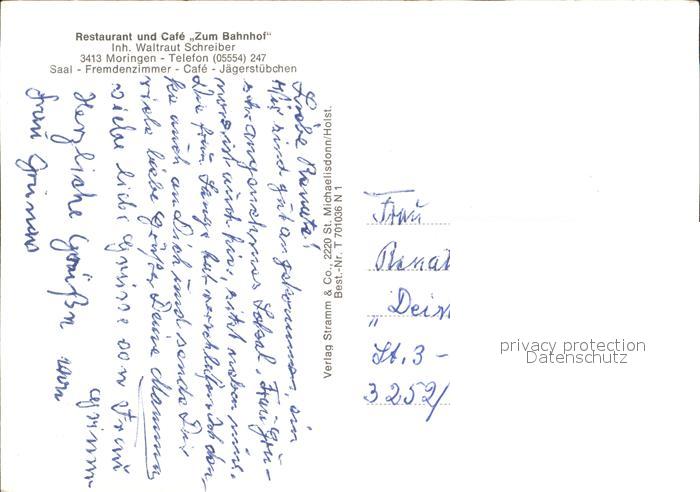 Restaurant und Café „Zum Bahnhof"
Inh. Waltraut Schreiber
3413 Moringen - Telefon (05554) 247
Saal - Fremdenzimmer - Café - Jägerstübchen
Liebe Renate!
Wir sind gut angekommen, ein
sehr angenehmes Lokal, Frau Grü-
ist auch hier, sitzt neben mir.
Die Frau Lange hat
ke auch an Dich und sende Dir
viele liebe Grüße Deine Mamma
viele liebe Grüsse von Frau
Herzliche Grüßn von
Frau
Verlag Stramm & Co., 2220 St. Michaelisdonn/Holst.
Best.-Nr. T 701036 N 1
Frau
Renat
„Deix
St. 3 -
3252/
privacy protection
Datenschutz